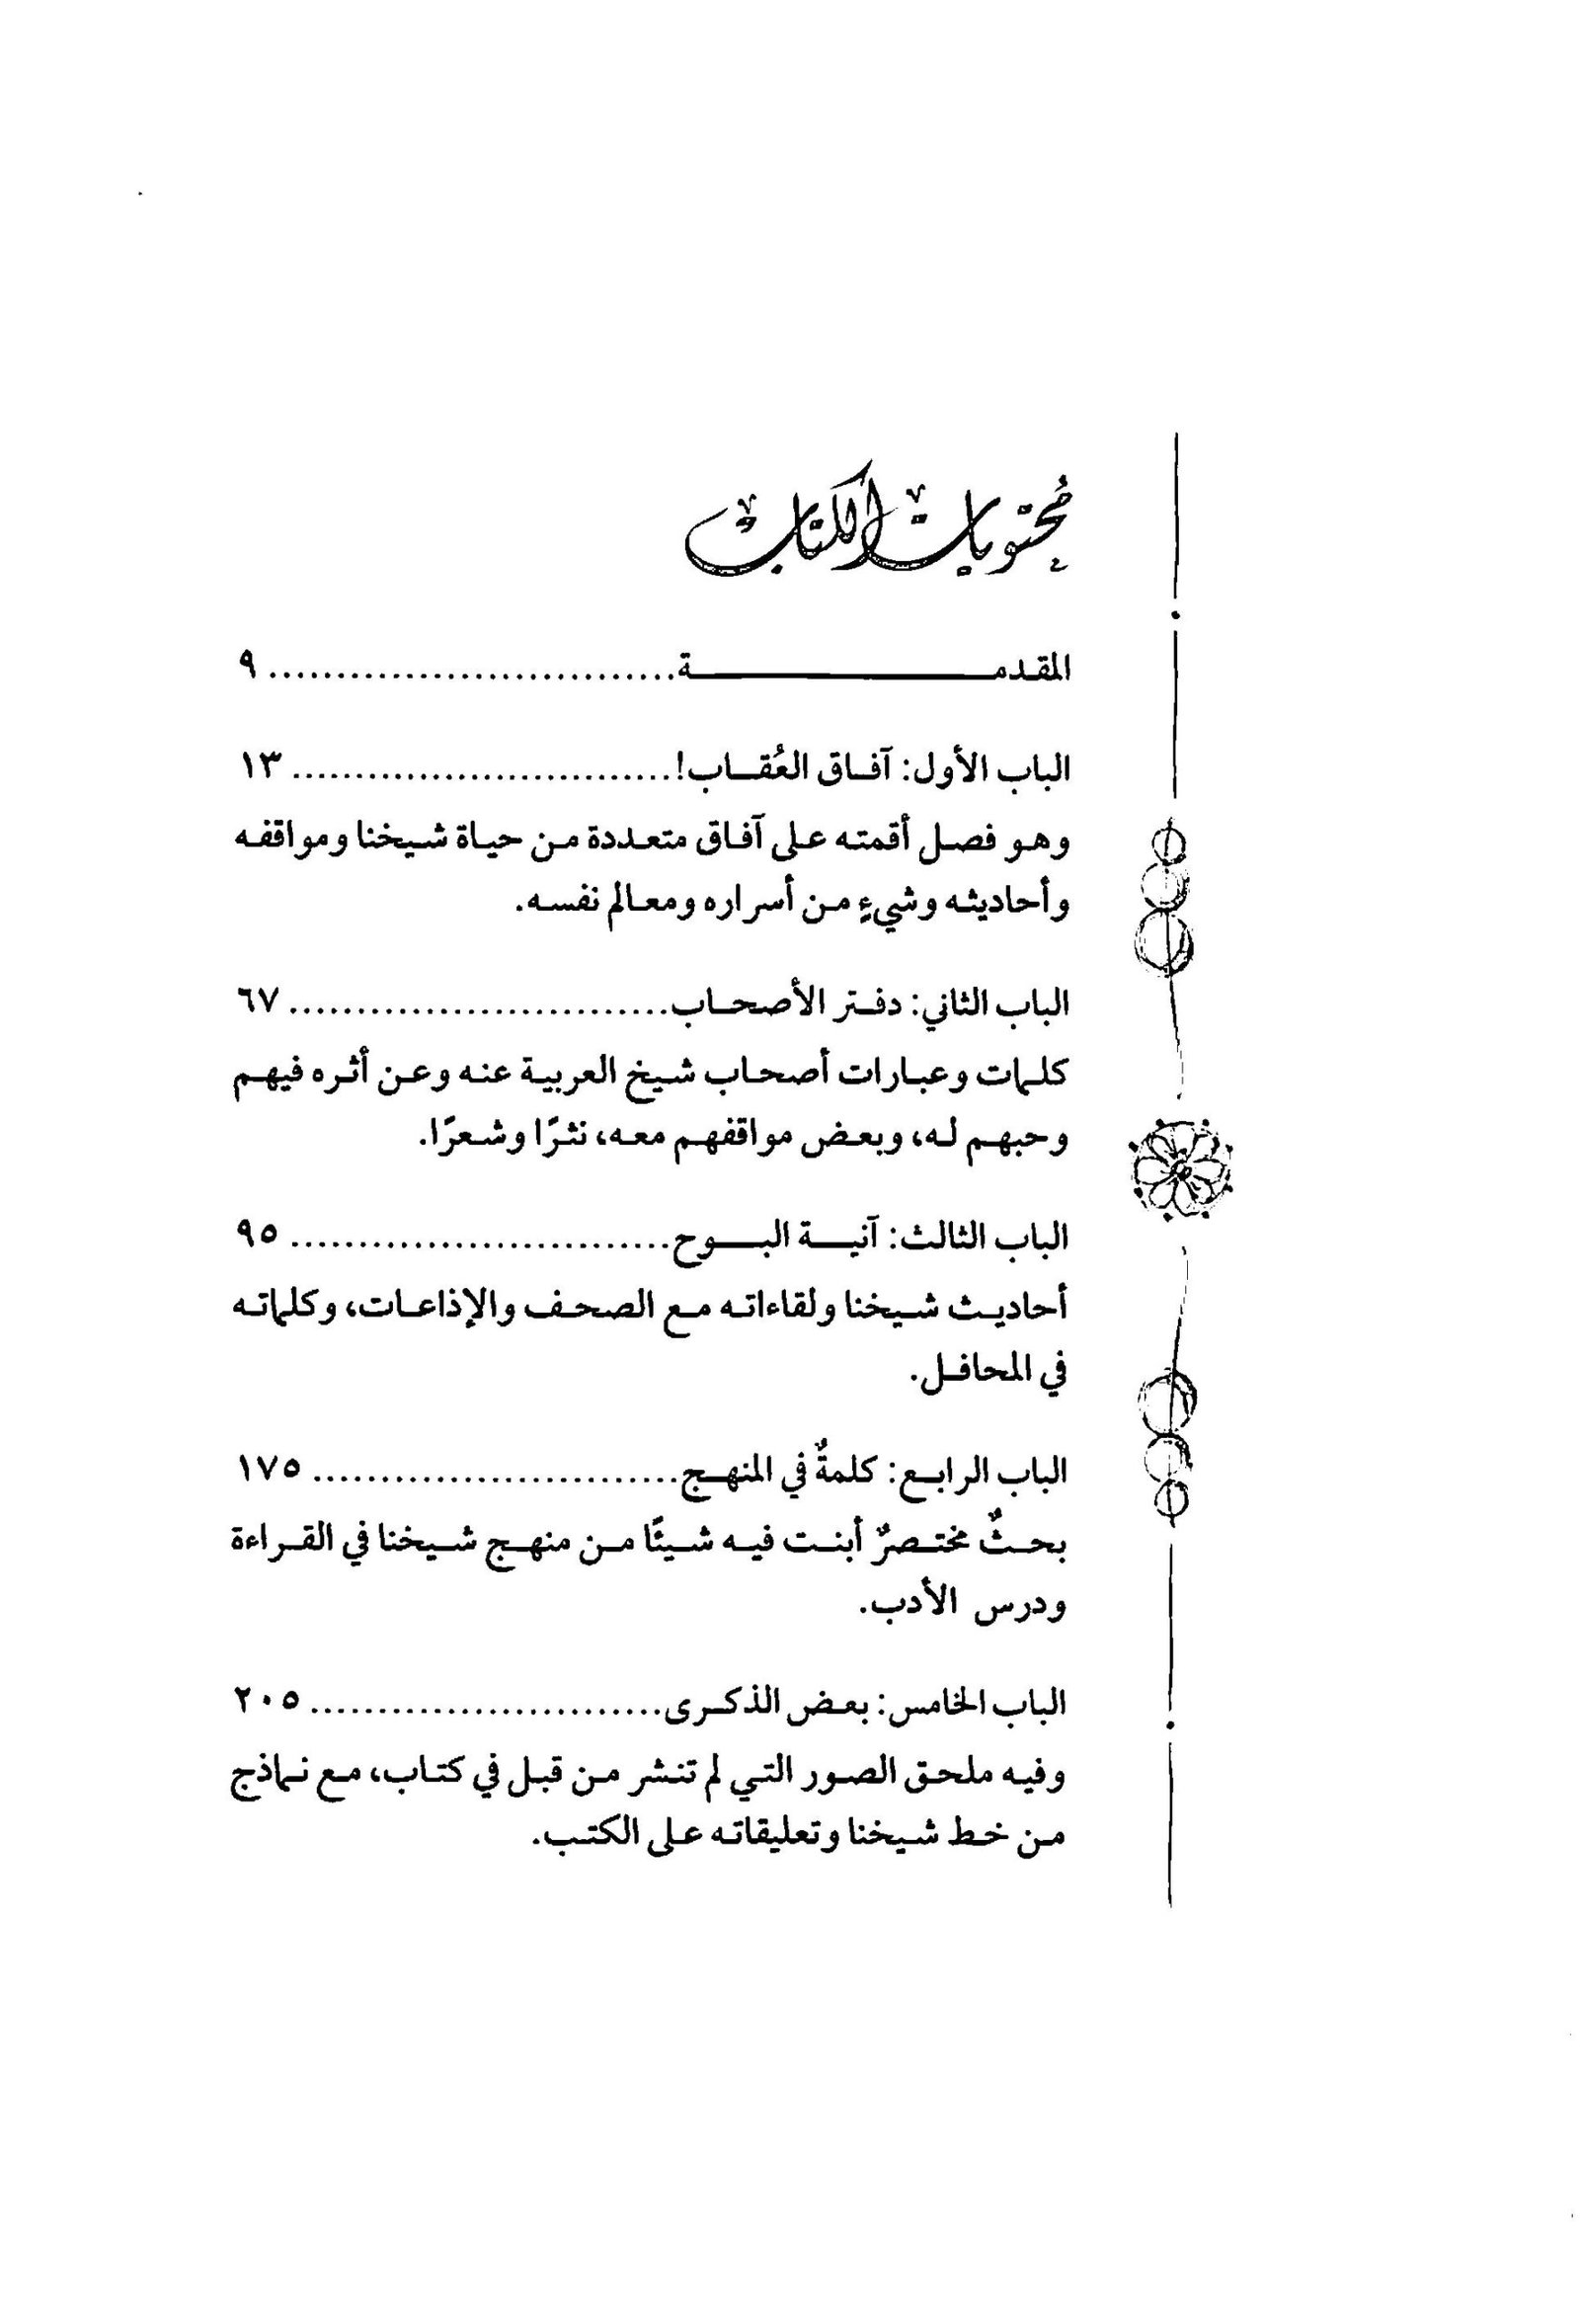 محتويات الكتاب
المقدمـــــــــــــــــــــة.............................. ٩
الباب الأول: آفـاق العُقــاب!............................. ١٣
وهـو فصـل أقمتـه عـلى آفـاق متعـددة مـن حيـاة شـيخنا ومواقفـه
وأحاديثـه وشيءٍ مـن أسراره ومعـالم نفسـه.
الباب الثاني: دفـتر الأصـحـاب............................. ٦٧
كلـمات وعبـارات أصحـاب شـيخ العربيـة عنـه وعـن أثـره فيهـم
وحبهـم لـه، وبعـض مواقفهـم معـه، نثـرًا وشـعرًا.
الباب الثالث: آنيــة البــوح............................. ٩٥
أحاديـث شـيخنا ولقاءاتـه مـع الصحـف والإذاعـات، وكلماتـه
في المحافـل.
الباب الرابـع: كلمةٌ في المنهـج............................ ١٧٥
بحـثٌ مختـصرٌ أبنـت فيـه شـيئًا مـن منهـج شـيخنا في القـراءة
ودرس الأدب.
الباب الخامس: بعـض الذكـرى........................... ٢٠٥
وفيـه ملحـق الصـور التـي لم تنـشر مـن قبـل في كتـاب، مـع نـماذج
مـن خـط شـيخنا وتعليقاتـه عـلى الكتـب.